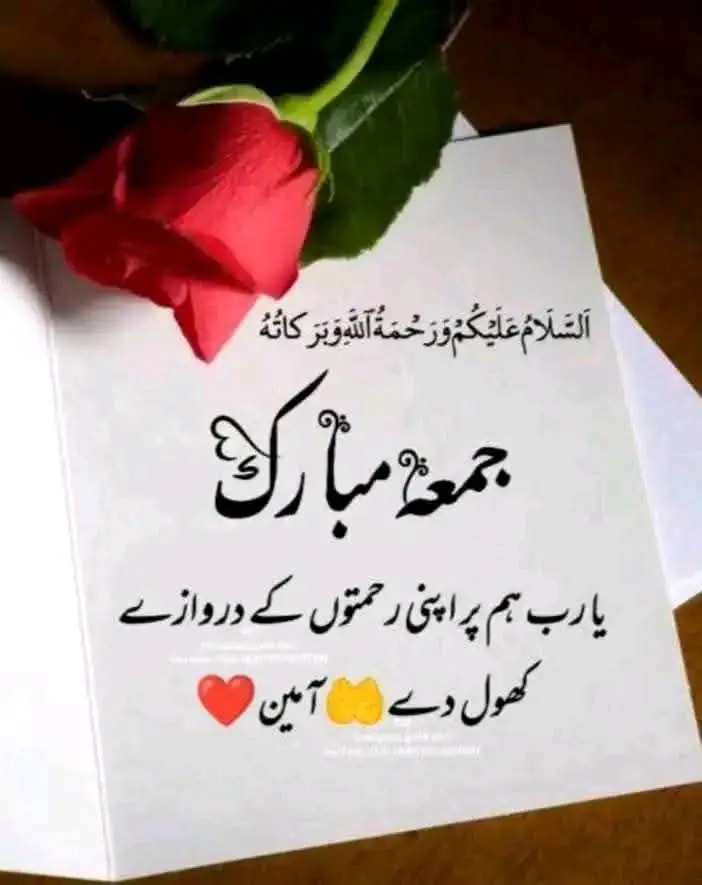 اَلسَّلَامُ عَلَيْكُمْ وَرَحْمَةُ ٱللَّهِ وَبَرَكَاتُهُ
جمعہ مبارک
یا رب ہم پر اپنی رحمتوں کے دروازے
کھول دے 🤲 آمین ❤️